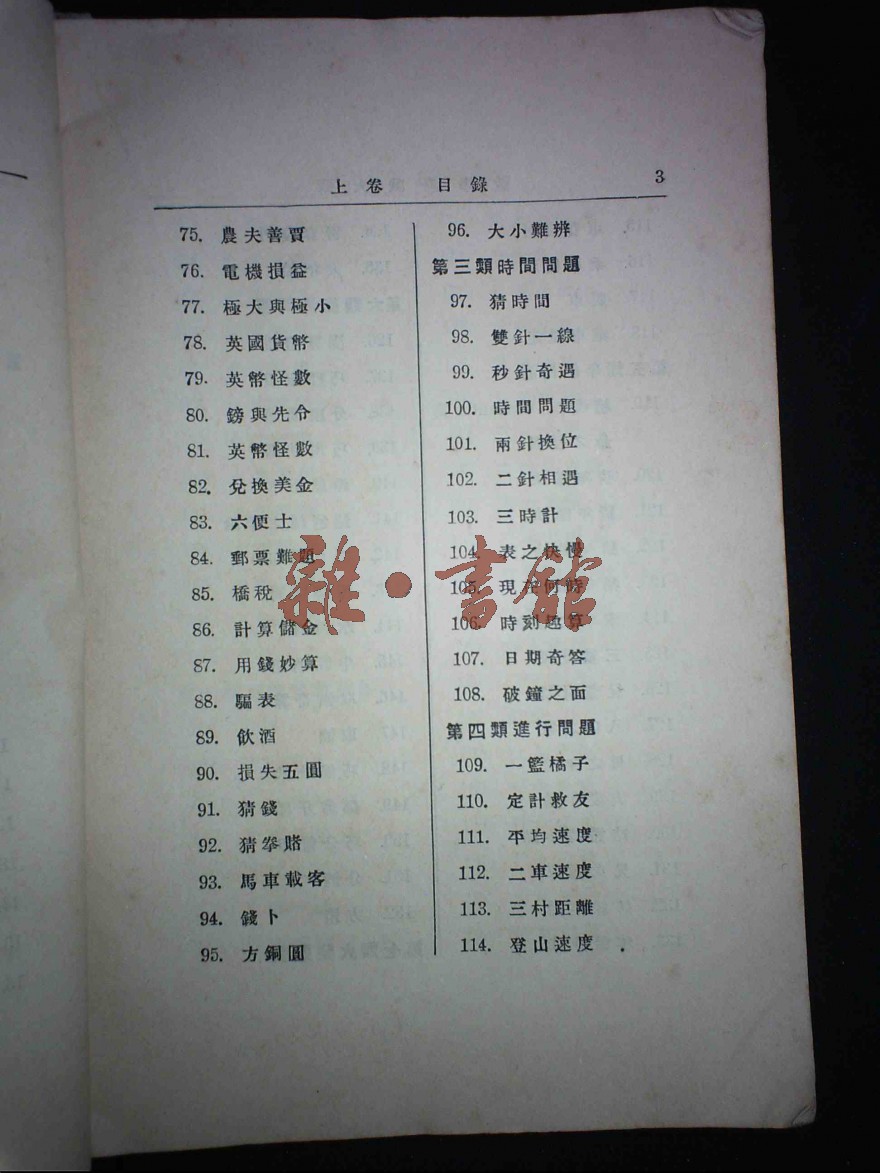 上卷 目錄 3
75. 農夫善賈
76. 電機損益
77. 極大與極小
78. 英國貨幣
79. 英幣怪數
80. 鎊與先令
81. 英幣怪數
82. 兌換美金
83. 六便士
84. 郵票難題
85. 橋稅
86. 計算儲金
87. 用錢妙算
88. 騙表
89. 飲酒
90. 損失五圓
91. 猜錢
92. 猜拳賭
93. 馬車載客
94. 錢卜
95. 方銅圓
96. 大小難辨
第三類時間問題
97. 猜時間
98. 雙針一線
99. 秒針奇遇
100. 時間問題
101. 兩針換位
102. 二針相遇
103. 三時計
104. 表之快慢
105. 現在何時
106. 時刻趣算
107. 日期奇答
108. 破鐘之面
第四類進行問題
109. 一籃橘子
110. 定計救友
111. 平均速度
112. 二車速度
113. 三村距離
114. 登山速度
雜·書館